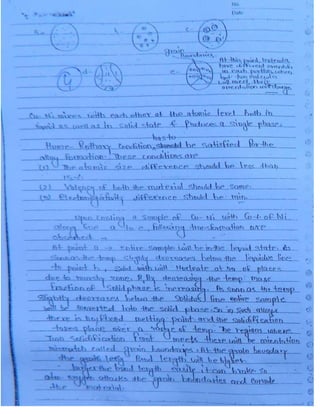 No.
Date
a.
b.
c.
grain
boundaries
At this point, materials
have different orientation
in each portion, when
two nucleates
will meet, their
orientation will change
d.
e.
Cu-Ni mixes with each other at the atomic level both in
liquid as well as in solid state & produce a single phase.
has to
Hume-Rothary Condition should be satisfied for the
alloy formation. These conditions are
(1) The atomic size difference should be less than
15%
(2) Valency of both the material should be same.
(3) Electronegativity difference should be min.
Upon cooling a sample of Cu-Ni with Co of Ni
along line a to e, following transformation are
observed →
At point a → entire sample will be in the liquid state. As
soon as the temp slightly decreases below the liquidus line
to point b, solid will nucleate at no. of places
due to mushy zone. By decreasing the temp more
fraction of solid phase is increasing. As soon as the temp
slightly decreases below the solidus line entire sample
will be converted into the solid phase. So in alloys
there is no fixed melting point and the solidification
takes place over a range of temp. The region where
two solidification front meets there will be orientation
mismatch called grain boundaries. At the grain boundary
the bond length will be higher.
higher the bond length easily it can break so
attacks the grain boundaries and
the material.